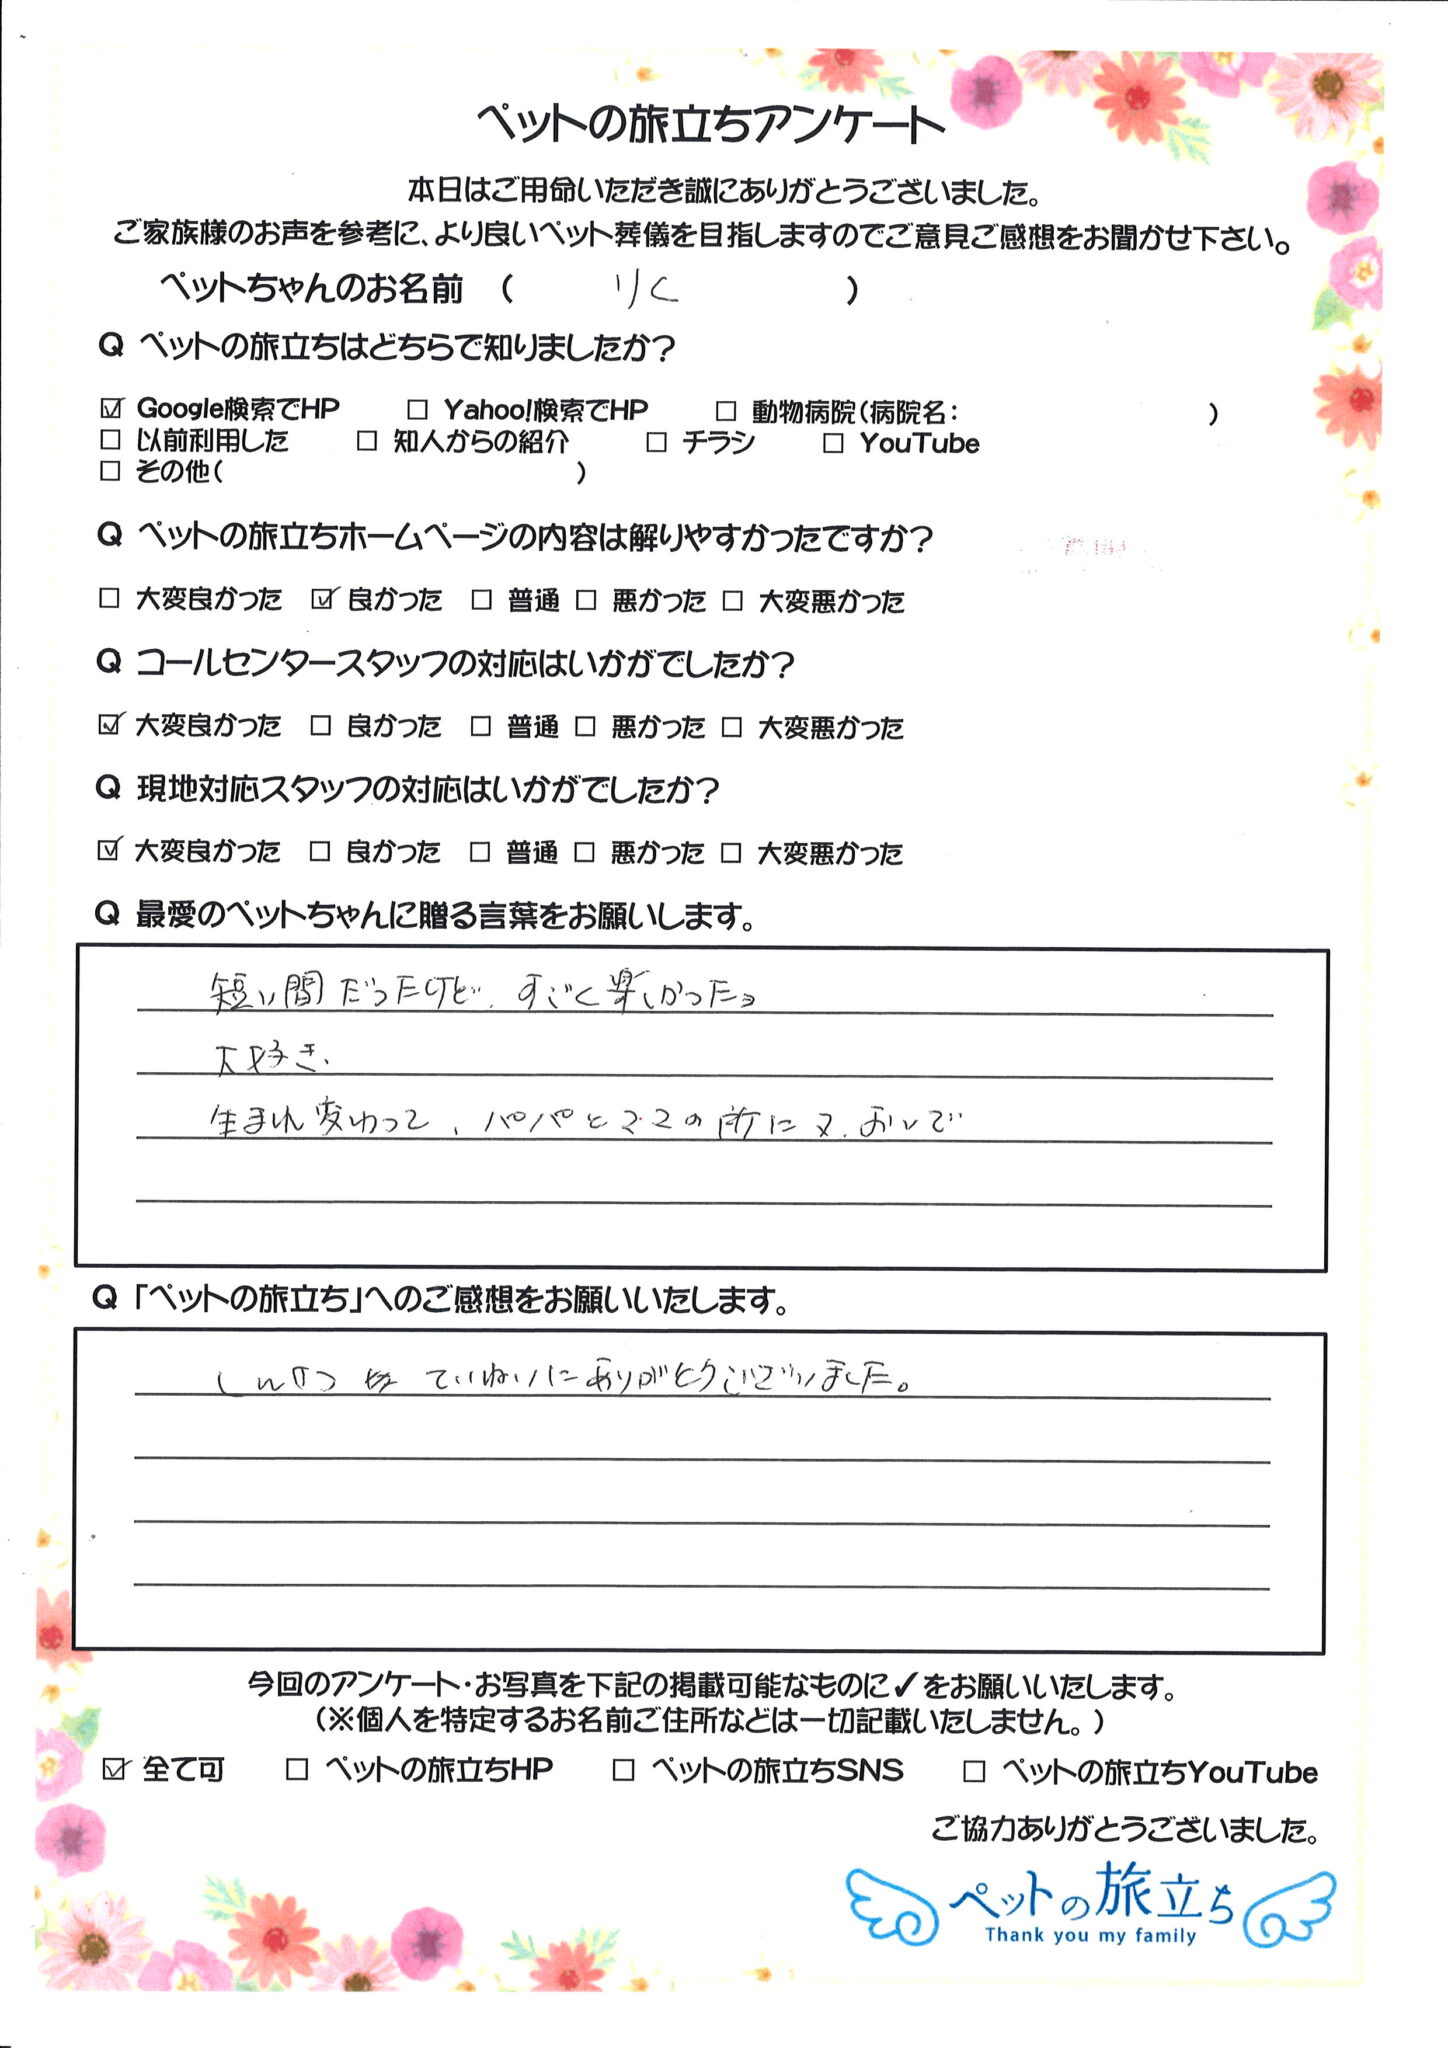 ペットの旅立ちアンケート
本日はご用命いただき誠にありがとうございました。
ご家族様のお声を参考に、より良いペット葬儀を目指しますのでご意見ご感想をお聞かせ下さい。
ペットちゃんのお名前 ( りく )
Q ペットの旅立ちはどちらで知りましたか?
☑ Google検索でHP □ Yahoo!検索でHP □ 動物病院(病院名: )
□ 以前利用した □ 知人からの紹介 □ チラシ □ YouTube
□ その他( )
Q ペットの旅立ちホームページの内容は解りやすかったですか?
□ 大変良かった ☑ 良かった □ 普通 □ 悪かった □ 大変悪かった
Q コールセンタースタッフの対応はいかがでしたか?
☑ 大変良かった □ 良かった □ 普通 □ 悪かった □ 大変悪かった
Q 現地対応スタッフの対応はいかがでしたか?
☑ 大変良かった □ 良かった □ 普通 □ 悪かった □ 大変悪かった
Q 最愛のペットちゃんに贈る言葉をお願いします。
短い間だったけど、すごく楽しかったョ
大好き、
生まれ変わって、パパとママの所に又、おいで
Q 「ペットの旅立ち」へのご感想をお願いいたします。
ていねいにありがとうございました。
今回のアンケート・お写真を下記の掲載可能なものに✓をお願いいたします。
(※個人を特定するお名前ご住所などは一切記載いたしません。)
☑ 全て可 □ ペットの旅立ちHP □ ペットの旅立ちSNS □ ペットの旅立ちYouTube
ご協力ありがとうございました。
ペットの旅立ち
Thank you my family